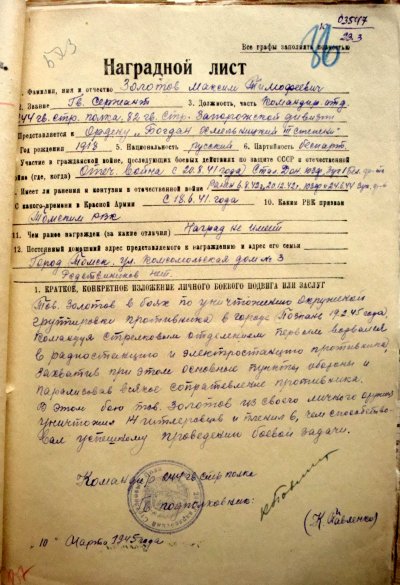 523
03547
29.3
Все графы заполнять полностью
Наградной лист
1. Фамилия, имя и отчество Золотов Максим Тимофеевич
2. Звание Гв. Сержант 3. Должность, часть Командир отд.
244 гв. стр. полка, 82 гв. стр. Запорожской дивизии
Представляется к Ордену "Богдан Хмельницкий III степени"
4. Год рождения 1918 5. Национальность русский 6. Партийность беспарт.
7. Участие в гражданской войне, последующих боевых действиях по защите СССР и отечественной
войне (где, когда) Отеч. Война с 20.8.41 года
8. Имеет ли ранения и контузии в отечественной войне
9. С какого времени в Красной Армии С 18.6.41 года 10. Каким РВК призван
Томским РВК
11. Чем ранее награжден (за какие отличия) Наград не имеет
12. Постоянный домашний адрес представляемого к награждению и адрес его семьи
Город Томск, ул. Комсомольская дом № 3
Родственников нет.
1. КРАТКОЕ, КОНКРЕТНОЕ ИЗЛОЖЕНИЕ ЛИЧНОГО БОЕВОГО ПОДВИГА ИЛИ ЗАСЛУГ
Тов. Золотов в боях по уничтожению окруженой
группировки противника в городе Познань 19.2.45 года,
Командуя стрелковым отделением первым ворвался
в радиостанцию и электростанцию противника,
Захватив при этом основные пункты обороны и
парализовав всякое сопративление противника.
В этом бою тов. Золотов из своего личного оружия
уничтожил 7 гитлеровцев и пленил 8, чем способство-
вал успешному проведению боевой задачи.
Командир 244 гв. стр. полка
гв. подполковник:
(К. Павленко)
"10" Марта 1945 года